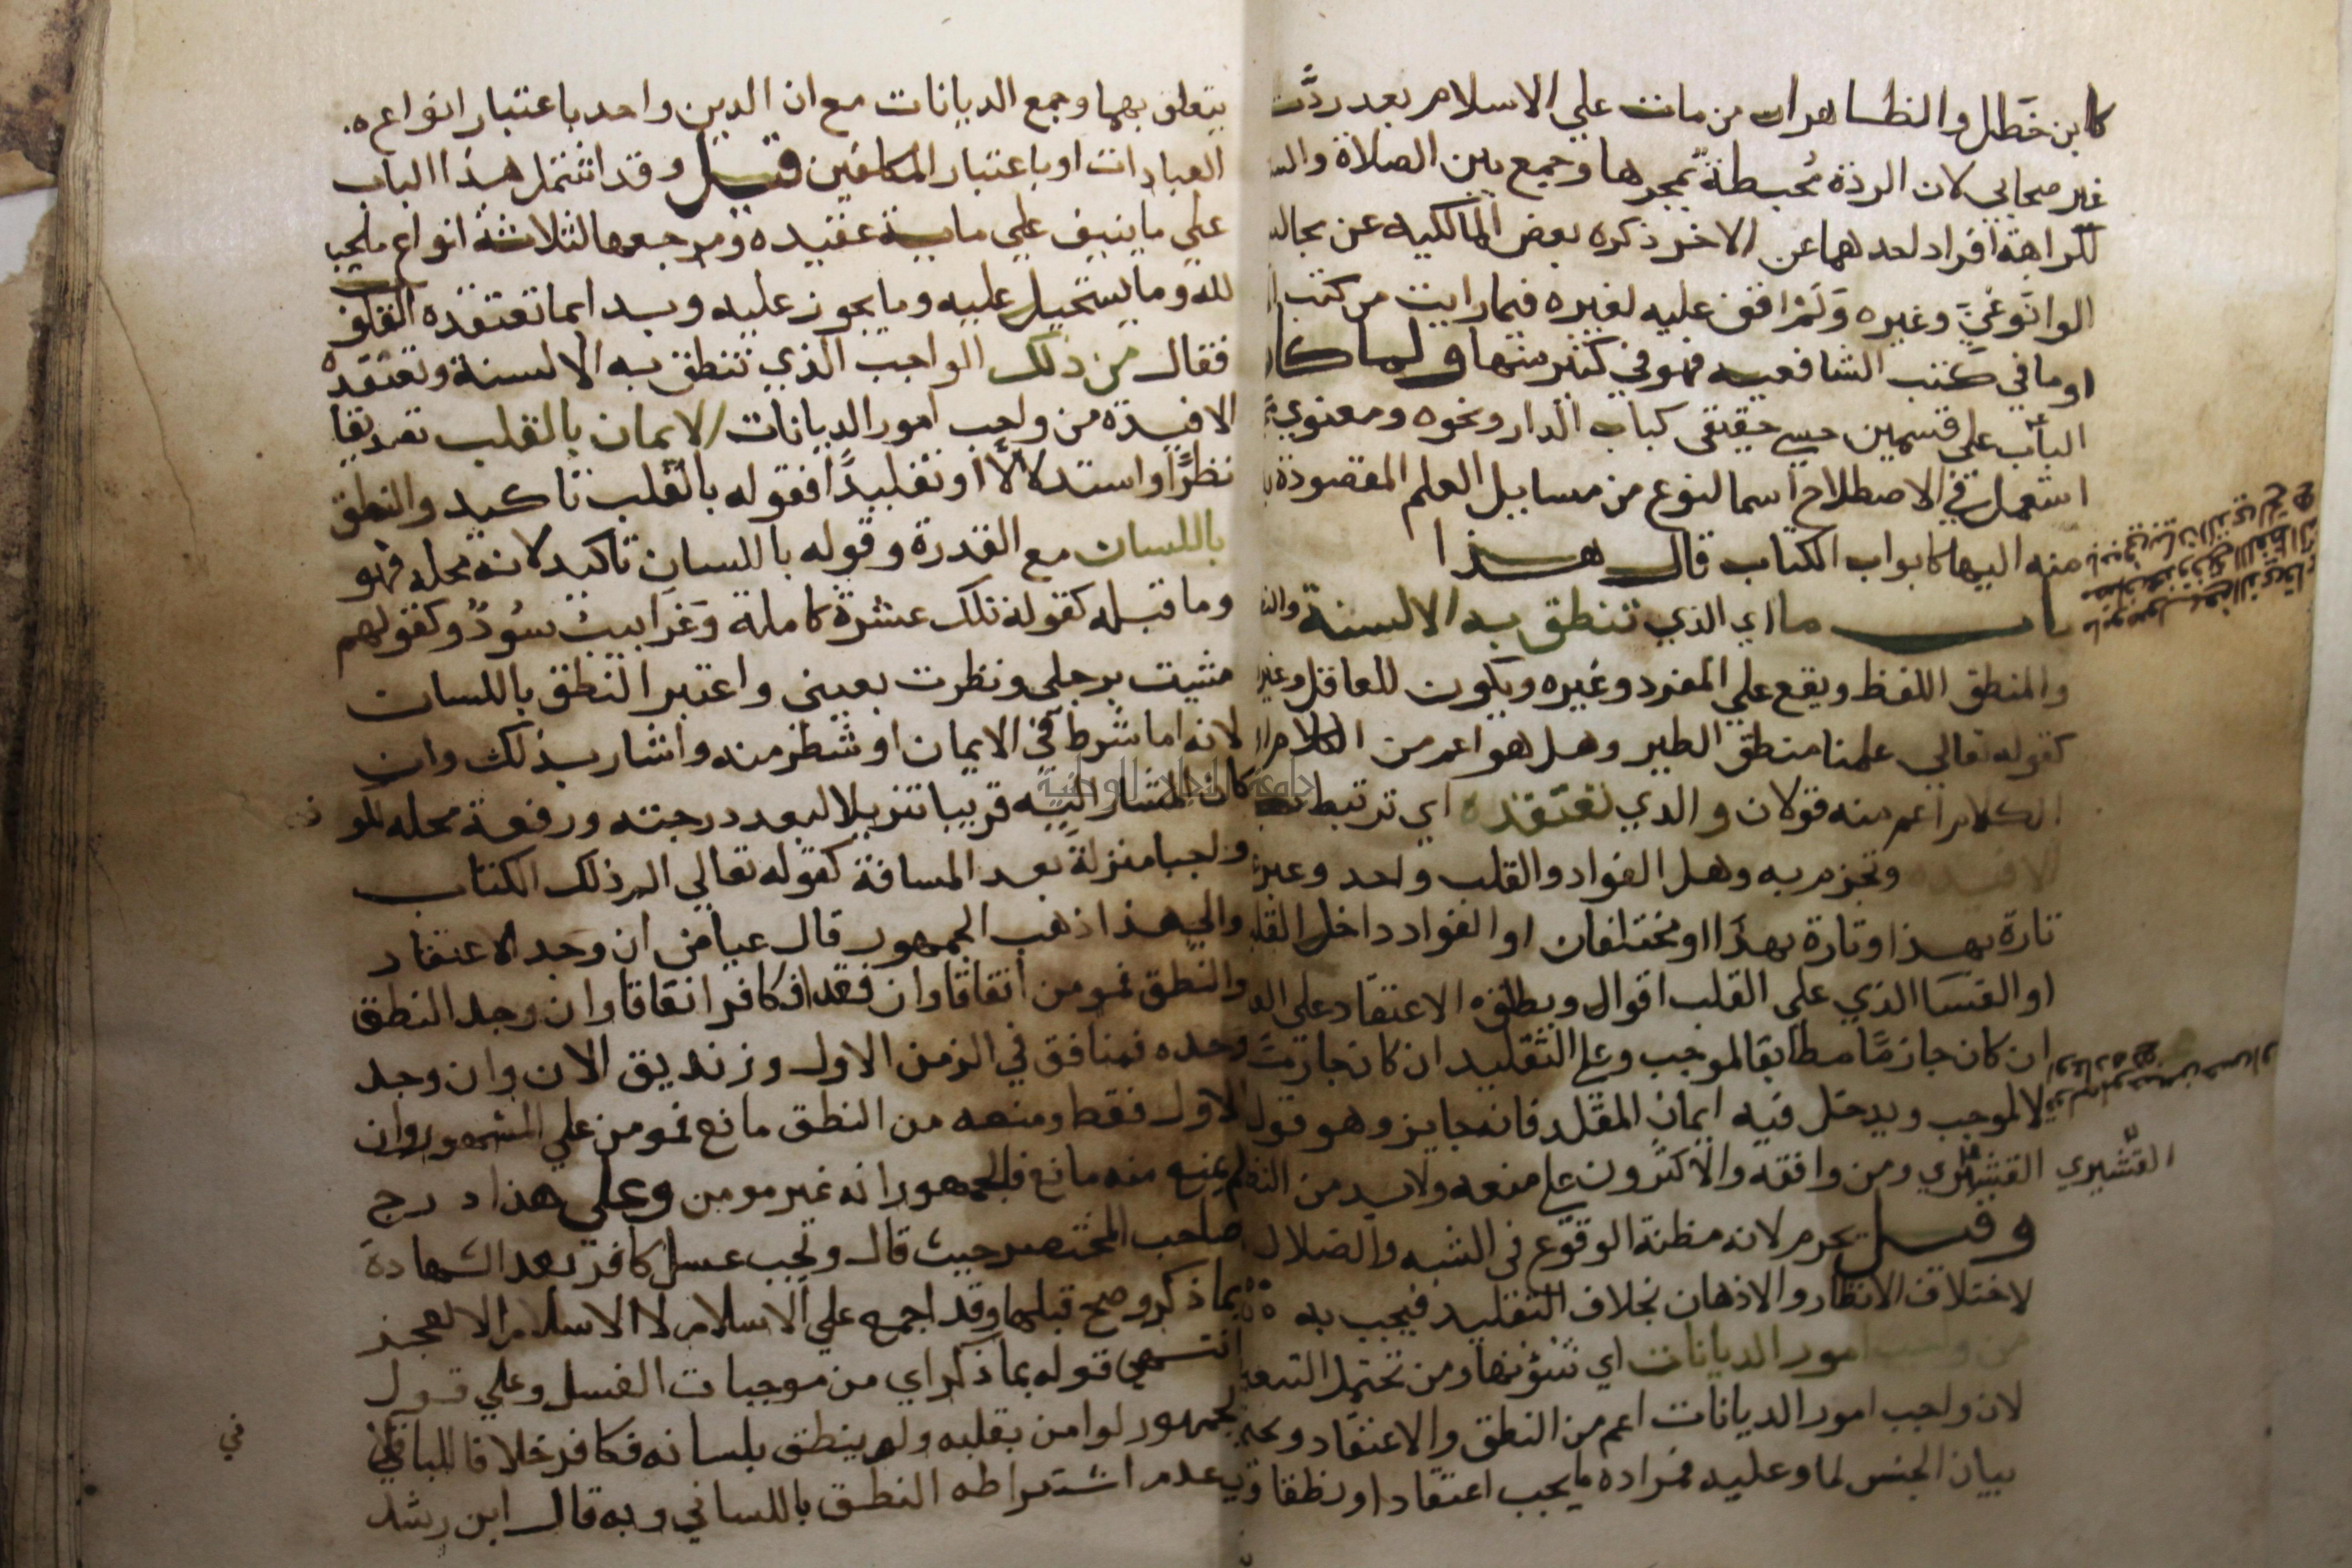 كابن خَطَل والظاهران من مات علي الاسلام بعد ردَّت
غير صحابي لان الردة مُحبطة بمجردها وجمع بين الصلاة
لكراهة افراد احدهما عن الاخر ذكره بعض المالكيه عن
الوانَوغيَ وغيره وَلَمْ اقف عليه لغيره فيما رايت من كتب
او ما في كتب الشافعيه فهو في كثير منها ولما كان
الباب علي قسمين حسي حقيقي كباب الدار ونحوه ومعنوي
استعمل في الاصطلاح اسما لنوع من مسايل العلم المقصودة
منه اليها كابواب الكتاب قال هذا
باب ما اي الذي تنطق به الالسنة
والمنطق اللفظ ويقع علي المفرد وغيره ويكون للعاقل وغير
كقوله تعالي علمنا منطق الطير وهل هو اعم من الكلام
الكلام اعم منه قولان والذي تعتقده اي ترتبط
الافيده وتجزم به وهل الفواد والقلب واحد وعبر
تارة بهذا وتارة بهذا او مختلفان او الفواد داخل القلب
او الغشا الذي علي القلب اقوال ويطلق الاعتقاد علي
ان كان جازمًا مطابقا لموجب وعلي التقليد ان كان جازمًا
لا لموجب ويدخل فيه ايمان المقلد فانه جايز وهو قول
القشيري ومن وافقه والاكثرون علي منعه ولابد من النظر
القشيري
وقيل يحرم لانه مظنة الوقوع في الشبه والضلال
لاختلاف الانظار والاذهان بخلاف التقليد فيجب به
من واجب امور الديانات اي شؤنها ومن تحتمل التبعيض
لان واجب امور الديانات اعم من النطق والاعتقاد
بيان الجنس لما وعليه فمراده ما يجب اعتقادا ونطقا
يتعلق بهما وجمع الديانات مع ان الدين واحد باعتبار انواع
العبادات او باعتبار المكلفين قيل وقد اشتمل هذا الباب
علي ما ينيف علي ماية عقيده ومرجعها لثلاثة انواع ما يجب
لله وما يستحيل عليه وما يجوز عليه وبدا بما تعتقده القلوب
فقال من ذلك الواجب الذي تنطق به الالسنة وتعتقده
الافيدة من واجب امور الديانات الايمان بالقلب تصديقا
نظرًا واستدلالًا او تقليدًا فقوله بالقلب تاكيد والنطق
باللسان مع القدرة وقوله باللسان تاكيد لانه محله فهو
وما قبله كقوله تلك عشرة كاملة وَغَرابيبُ سُودٌ وكقولهم
مشيت برجلي ونظرت بعيني واعتبر النطق باللسان
لانه اما شرط في الايمان او شطر منه واشار بذلك وان
كان المشار اليه قريبا تنزيلا لبعد درجته ورفعة محله
واجبا منزلة بعد المسافة كقوله تعالي الم ذلك الكتاب
والي هذا ذهب الجمهور قال عياض ان وجد الاعتقاد
والنطق فمومن اتفاقا وان فقدا فكافر اتفاقا وان وجد النطق
وحده فمنافق في الزمن الاول وزنديق الان وان وجد
الاول فقط ومنعه من النطق مانع فمومن علي المشهور وان
لم يمنعه منه مانع فالجمهور انه غير مومن وعلي هذا درج
صاحب المختصر حيث قال وتجب غسل كافر بعد الشهادة
بما ذكر وصح قبلها وقد اجمع علي الاسلام لا الاسلام الا لعجز
انتهي قوله بما ذكر اي من موجبات الغسل وعلي قول
الجمهور لو امن بقلبه ولم ينطق بلسانه فكافر خلافا للباقلاني
في
بعدم اشتراطه النطق باللساني وبه قال ابن رشد
جامعة النجاح الوطنية